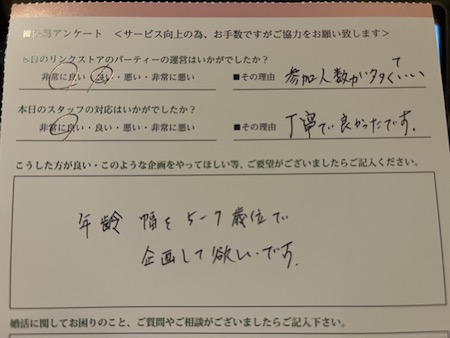 アンケート <サービス向上の為、お手数ですがご協力をお願い致します>
日のリンクストアのパーティーの運営はいかがでしたか?
非常に良い・良い・悪い・非常に悪い ■その理由 参加人数が多くていい
本日のスタッフの対応はいかがでしたか?
非常に良い・良い・悪い・非常に悪い ■その理由 丁寧で良かったです。
こうした方が良い・このような企画をやってほしい等、ご要望がございましたらご記入ください。
年齢 幅を5-7歳位で
企画して欲しいです。
婚活に関してお困りのこと、ご質問やご相談がございましたらご記入下さい。